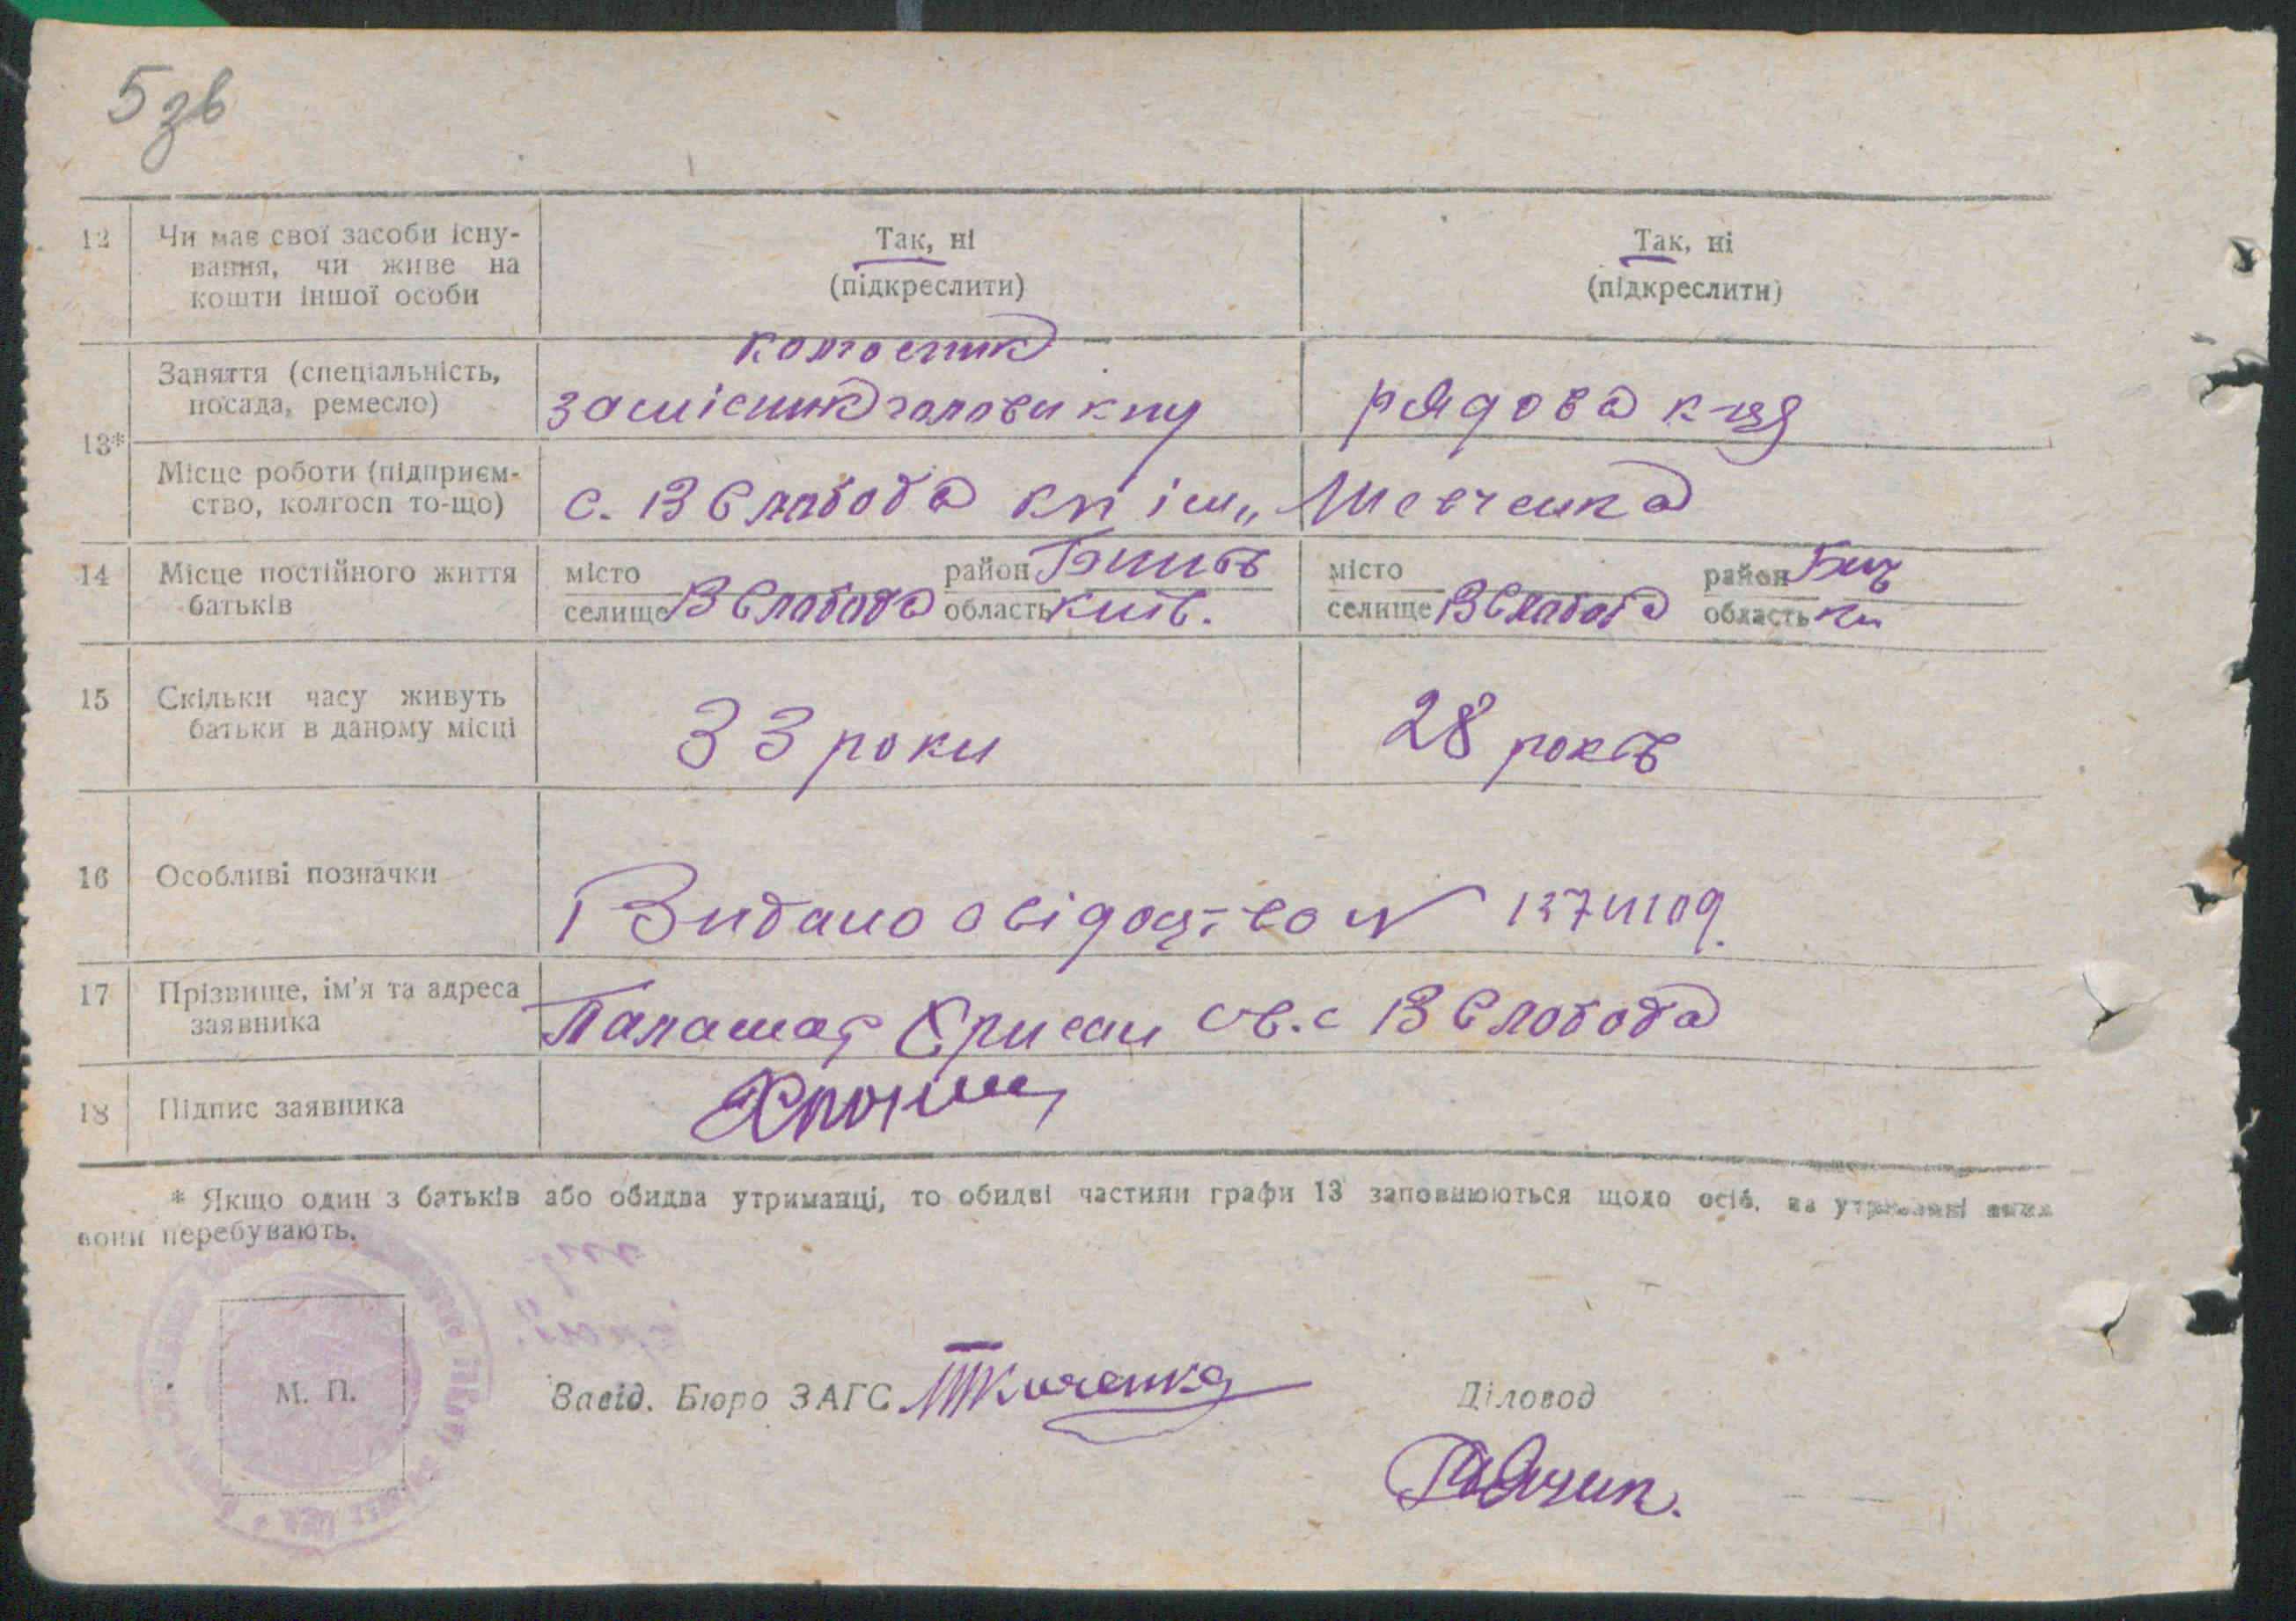 5 зв
12 Чи має свої засоби існу- Так, ні Так, ні
вання, чи живе на (підкреслити) (підкреслити)
кошти іншої особи
колгоспник
Заняття (спеціальність, замісник голови кпу рядова к-ця
посада, ремесло)
13*
Місце роботи (підприєм- с. В Слобода кп ім„ Шевченка
ство, колгосп то-що)
14 Місце постійного життя місто район місто район
батьків селище В Слобода область Київ. селище В Слобода область Ки
15 Скільки часу живуть 33 роки 28 років
батьки в даному місці
16 Особливі позначки Видано свідоцтво №
17 Прізвище, ім'я та адреса с. В Слобода
заявника
18 Підпис заявника
* Якщо один з батьків або обидва утриманці, то обидві частини графи 13 заповнюються щодо осіб, на утриманні яких
вони перебувають.
М. П. Завід. Бюро ЗАГС Ткаченко Діловод